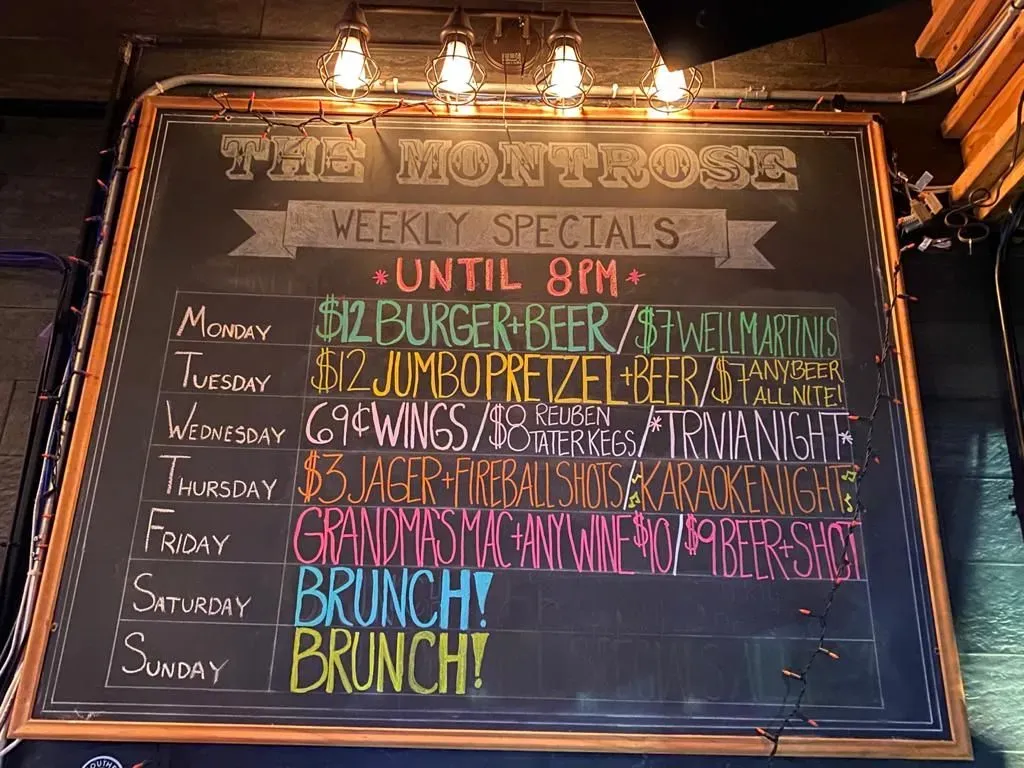 THE MONTROSE
WEEKLY SPECIALS
*UNTIL 8PM*
MONDAY $12 BURGER+BEER / $7 WELL MARTINIS
TUESDAY $12 JUMBO PRETZEL+BEER / $7 ANY BEER ALL NITE!
WEDNESDAY 69¢ WINGS / $8 REUBEN TATER KEGS / *TRIVIA NIGHT*
THURSDAY $3 JAGER+FIREBALL SHOTS / KARAOKE NIGHT
FRIDAY GRANDMA'S MAC+ANY WINE $10 / $9 BEER+SHOT
SATURDAY BRUNCH!
SUNDAY BRUNCH!